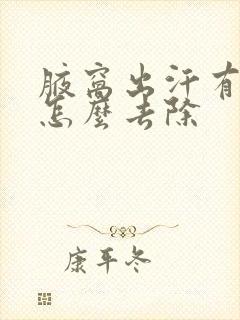 腋窩出汗有
怎麼去除
康平冬